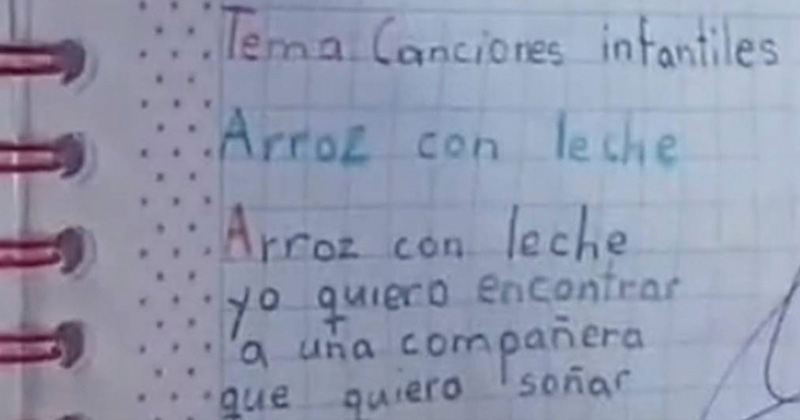 Tema Canciones infantiles
Arroz con leche
Arroz con leche
yo quiero encontrar
a una compañera
que quiera soñar